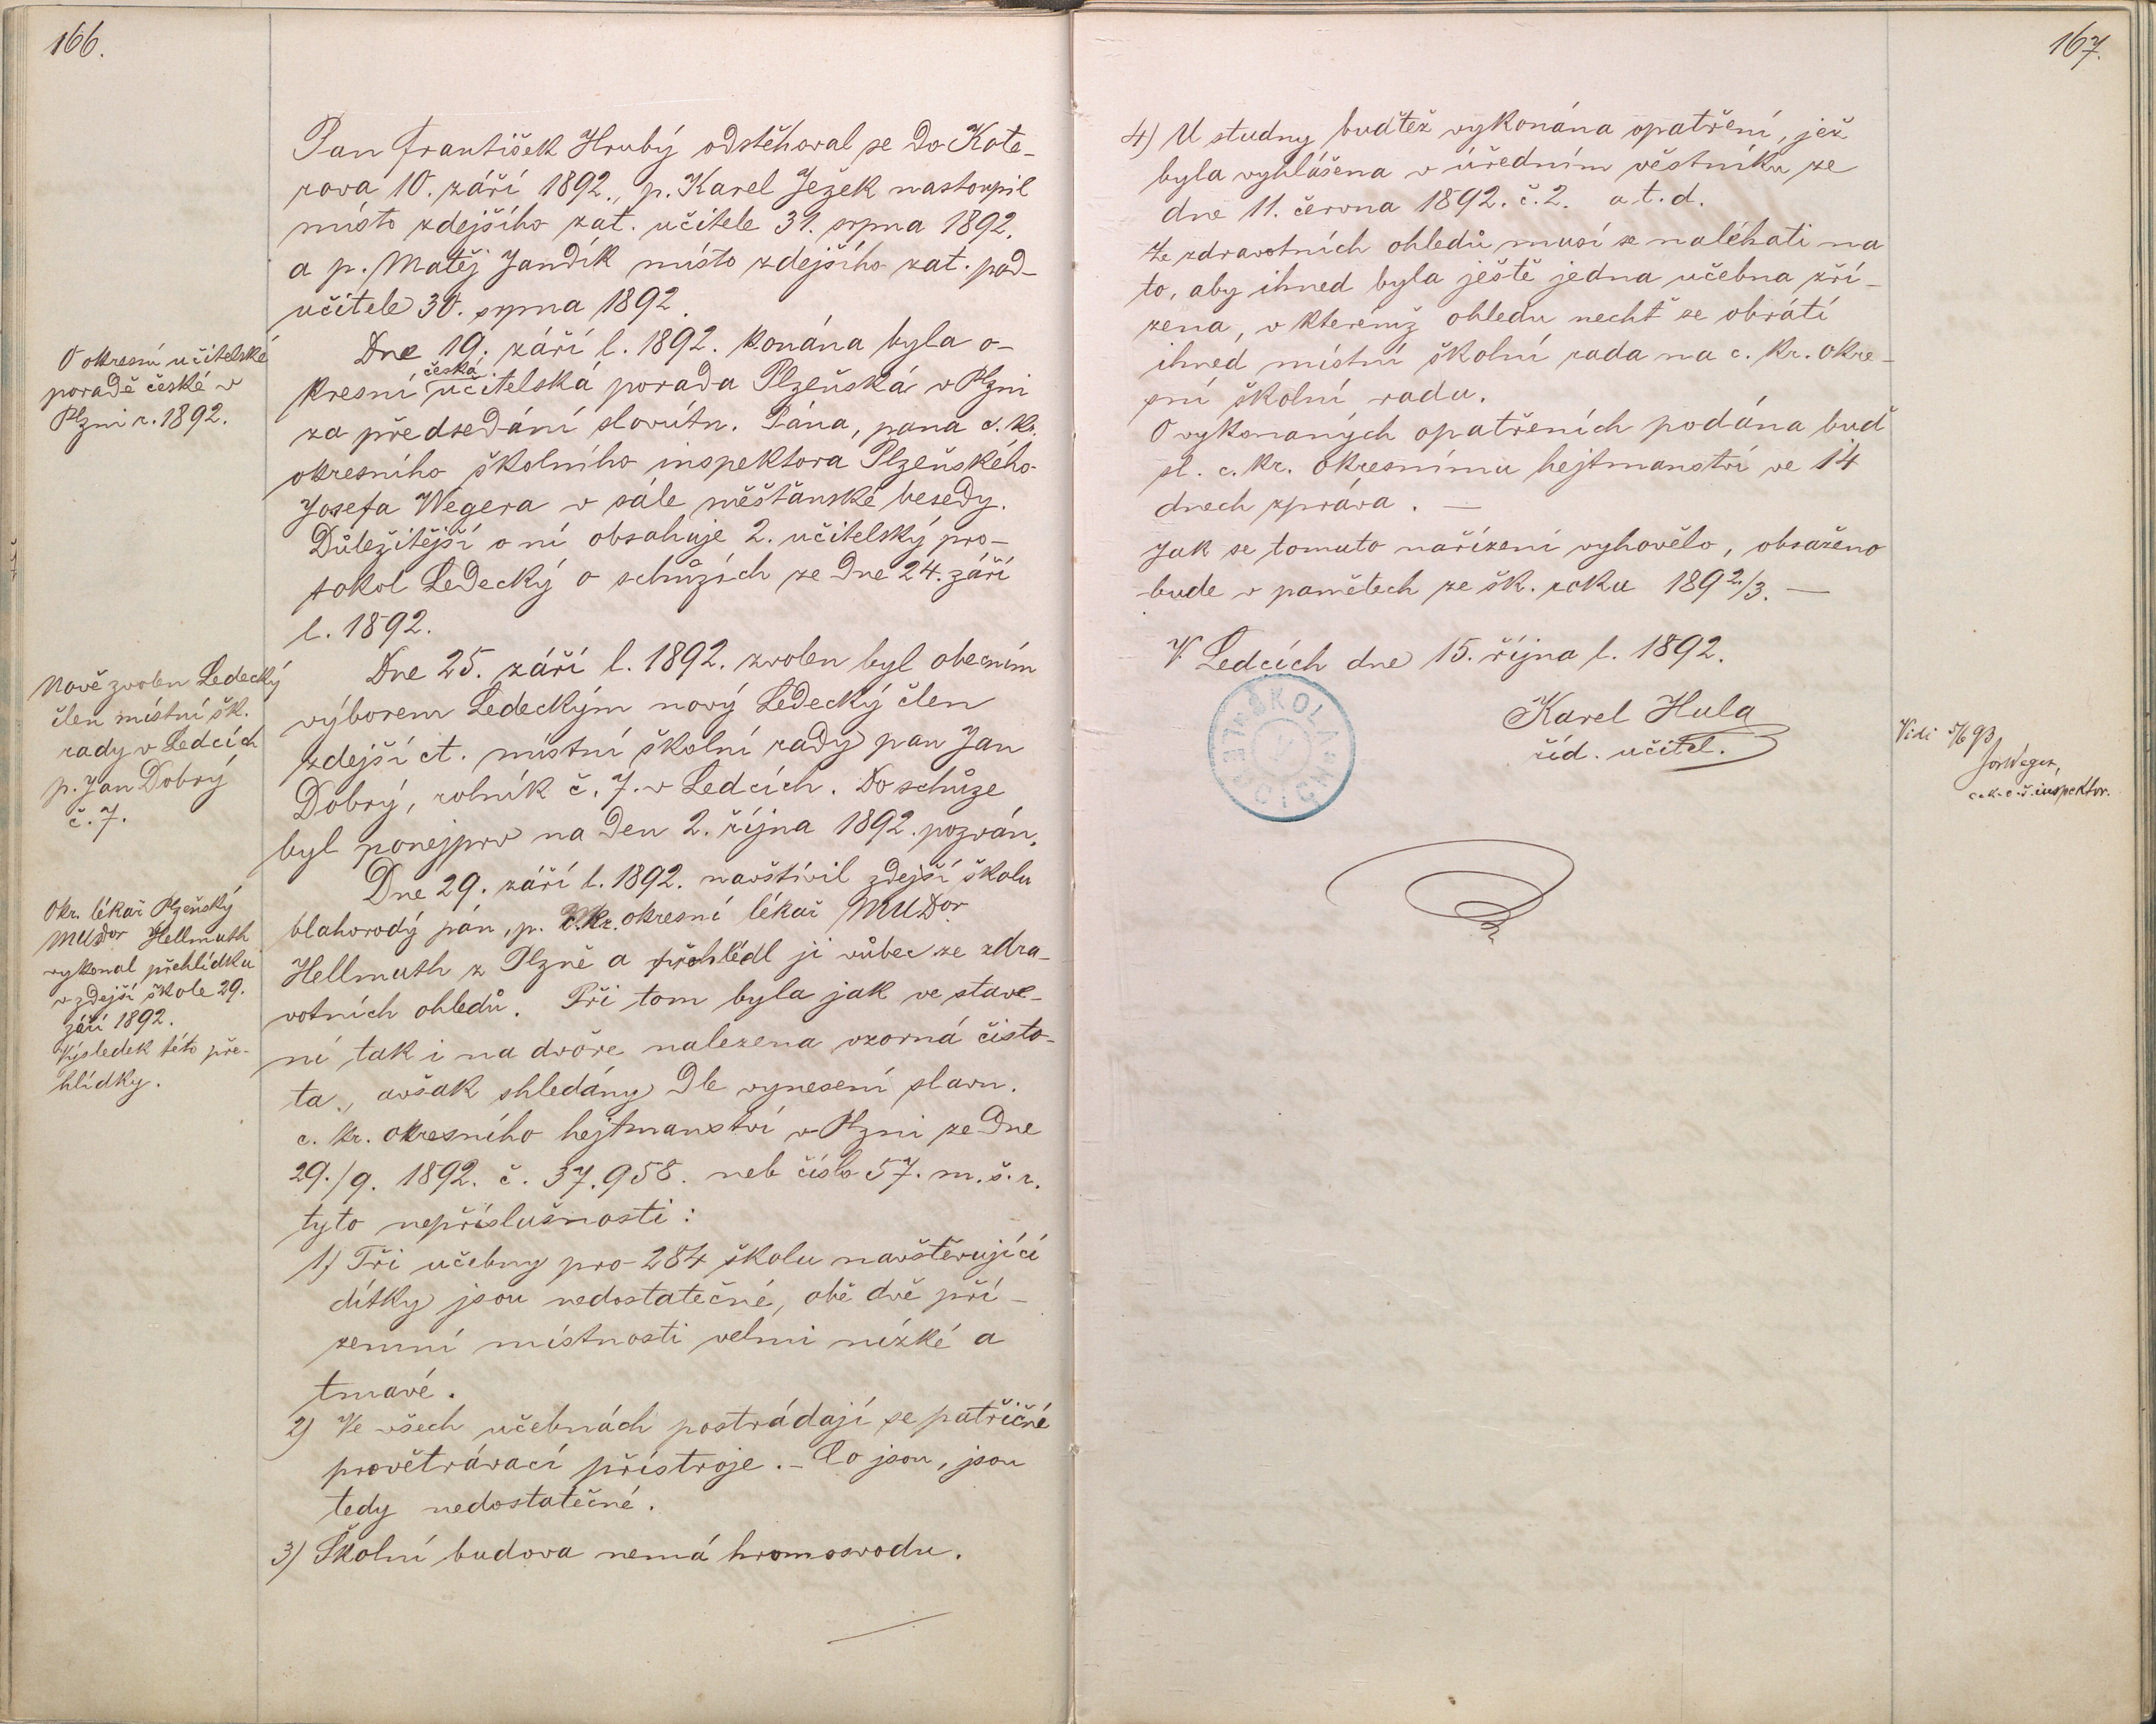 166.
Pan František Hrubý odstěhoval se do Kote-
rova 10. září 1892., p. Karel Ježek nastoupil
místo zdejšího zat. učitele 31. srpna 1892.
a p. Matěj Jandík místo zdejšího zat. pod-
učitele 30. srpna 1892.
O okresní učitelské
poradě české v
Plzni r. 1892.
Dne 19. září l. 1892. konána byla o-
česká
kresní učitelská porada Plzeňská v Plzni
za předsedání slovútn. Pána, pana c. kr.
okresního školního inspektora Plzeňského
Josefa Wegera v sále měšťanské besedy.
Důležitější o ní obsahuje 2. učitelský pro-
tokol Ledecký o schůzích ze dne 24. září
l. 1892.
Nově zvolen Ledecký
člen místní šk.
rady v Ledcích
p. Jan Dobrý
č. 7.
Dne 25. září l. 1892. zvolen byl obecním
výborem Ledeckým nový Ledecký člen
zdejší ct. místní školní rady pan Jan
Dobrý, rolník č. 7. v Ledcích. Do schůze
byl ponejprv na den 2. října 1892. pozván.
Okr. lékař Plzeňský
MUDor Hellmuth
vykonal přehlídku
v zdejší škole 29.
září 1892.
Výsledek této pře-
hlídky.
Dne 29. září l. 1892. navštívil zdejší školu
blahorodý pán, p. c. kr. okresní lékař MUDor
Hellmuth z Plzně a přehlédl ji vůbec ze zdra-
votních ohledů. Při tom byla jak ve stave-
ní tak i na dvoře nalezena vzorná čisto-
ta, avšak shledány dle vynesení slavn.
c. kr. okresního hejtmanství v Plzni ze dne
29./9. 1892. č. 37.958. neb číslo 57. m. š. r.
tyto nepříslušnosti:
1) Tři učebny pro 284 školu navštěvující
dítky jsou nedostatečné, obě dvě pří-
zemní místnosti velmi nízké a
tmavé.
2) Ve všech učebnách postrádají se patřičné
provětrávací přístroje. – Co jsou, jsou
tedy nedostatečné.
3) Školní budova nemá hromosvodu.
167.
4) U studny buďtež vykonána opatření, jež
byla vyhlášena v úředním věstníku ze
dne 11. června 1892. č. 2. a t. d.
Ze zdravotních ohledů musí se naléhati na
to, aby ihned byla ještě jedna učebna zří-
zena, v kterémž ohledu nechť se obrátí
ihned místní školní rada na c. kr. okre-
sní školní radu.
O vykonaných opatřeních podána buď
sl. c. kr. okresnímu hejtmanství ve 14
dnech zpráva. —
Jak se tomuto nařízení vyhovělo, obsaženo
bude v pamětech ze šk. roku 1892/3. —
V Ledcích dne 15. října l. 1892.
Karel Hula
říd. učitel.
ŠKOLA v LEDCÍCH
Vidi 5/6 93
Jos Weger,
c. k. o. š. inspektor.